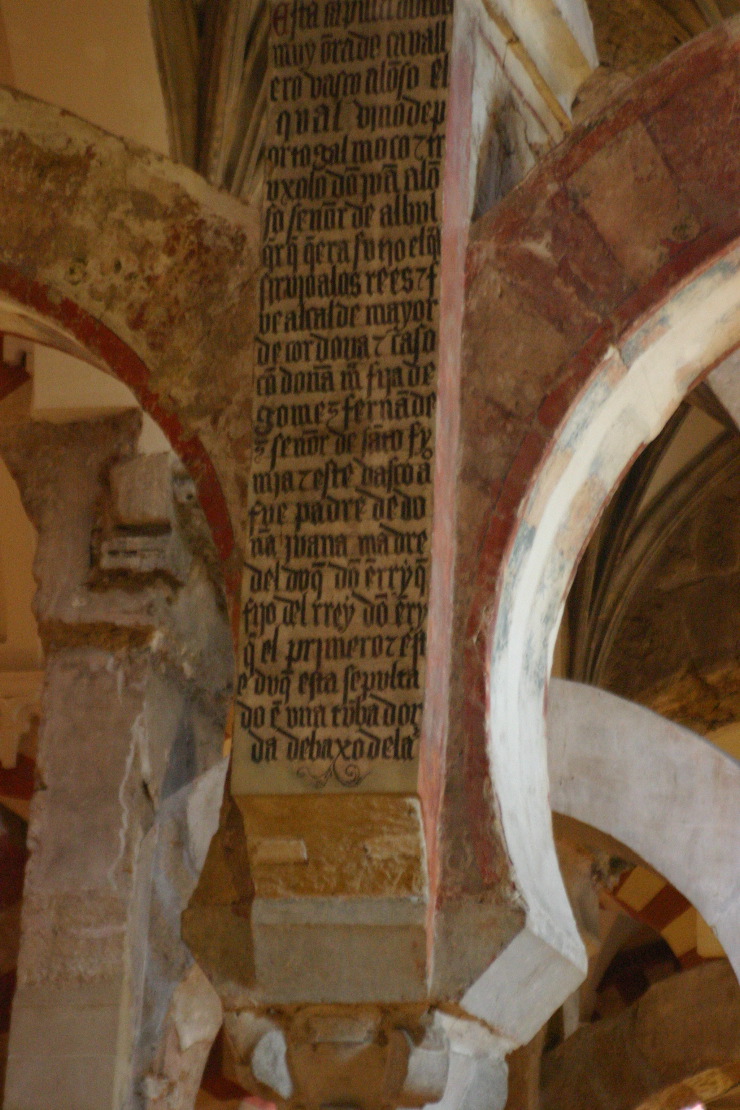 Esta sepultado
muy ōrade cavall
ero vasco alōso el
qual vino dep
ortogal moço ⁊ tr
uxolo dō juā alō
so señor de albur
qrq̄ q̄ era su tio el q̄l
sirvio a los reës ⁊ f
ve alcalde mayor
de cordova ⁊ caso
cō doña m̄ fija de
gomez fernāde
z señor de sāto fy
mia ⁊ este vasco a
fue padre de do
ña juana madre
del duq̄ dō ērryq̄
fijo del rrey dō ēry
q̄ el primero ⁊ est
e duq̄ esta sepulta
do ē una tūba dor
da debaxo dela